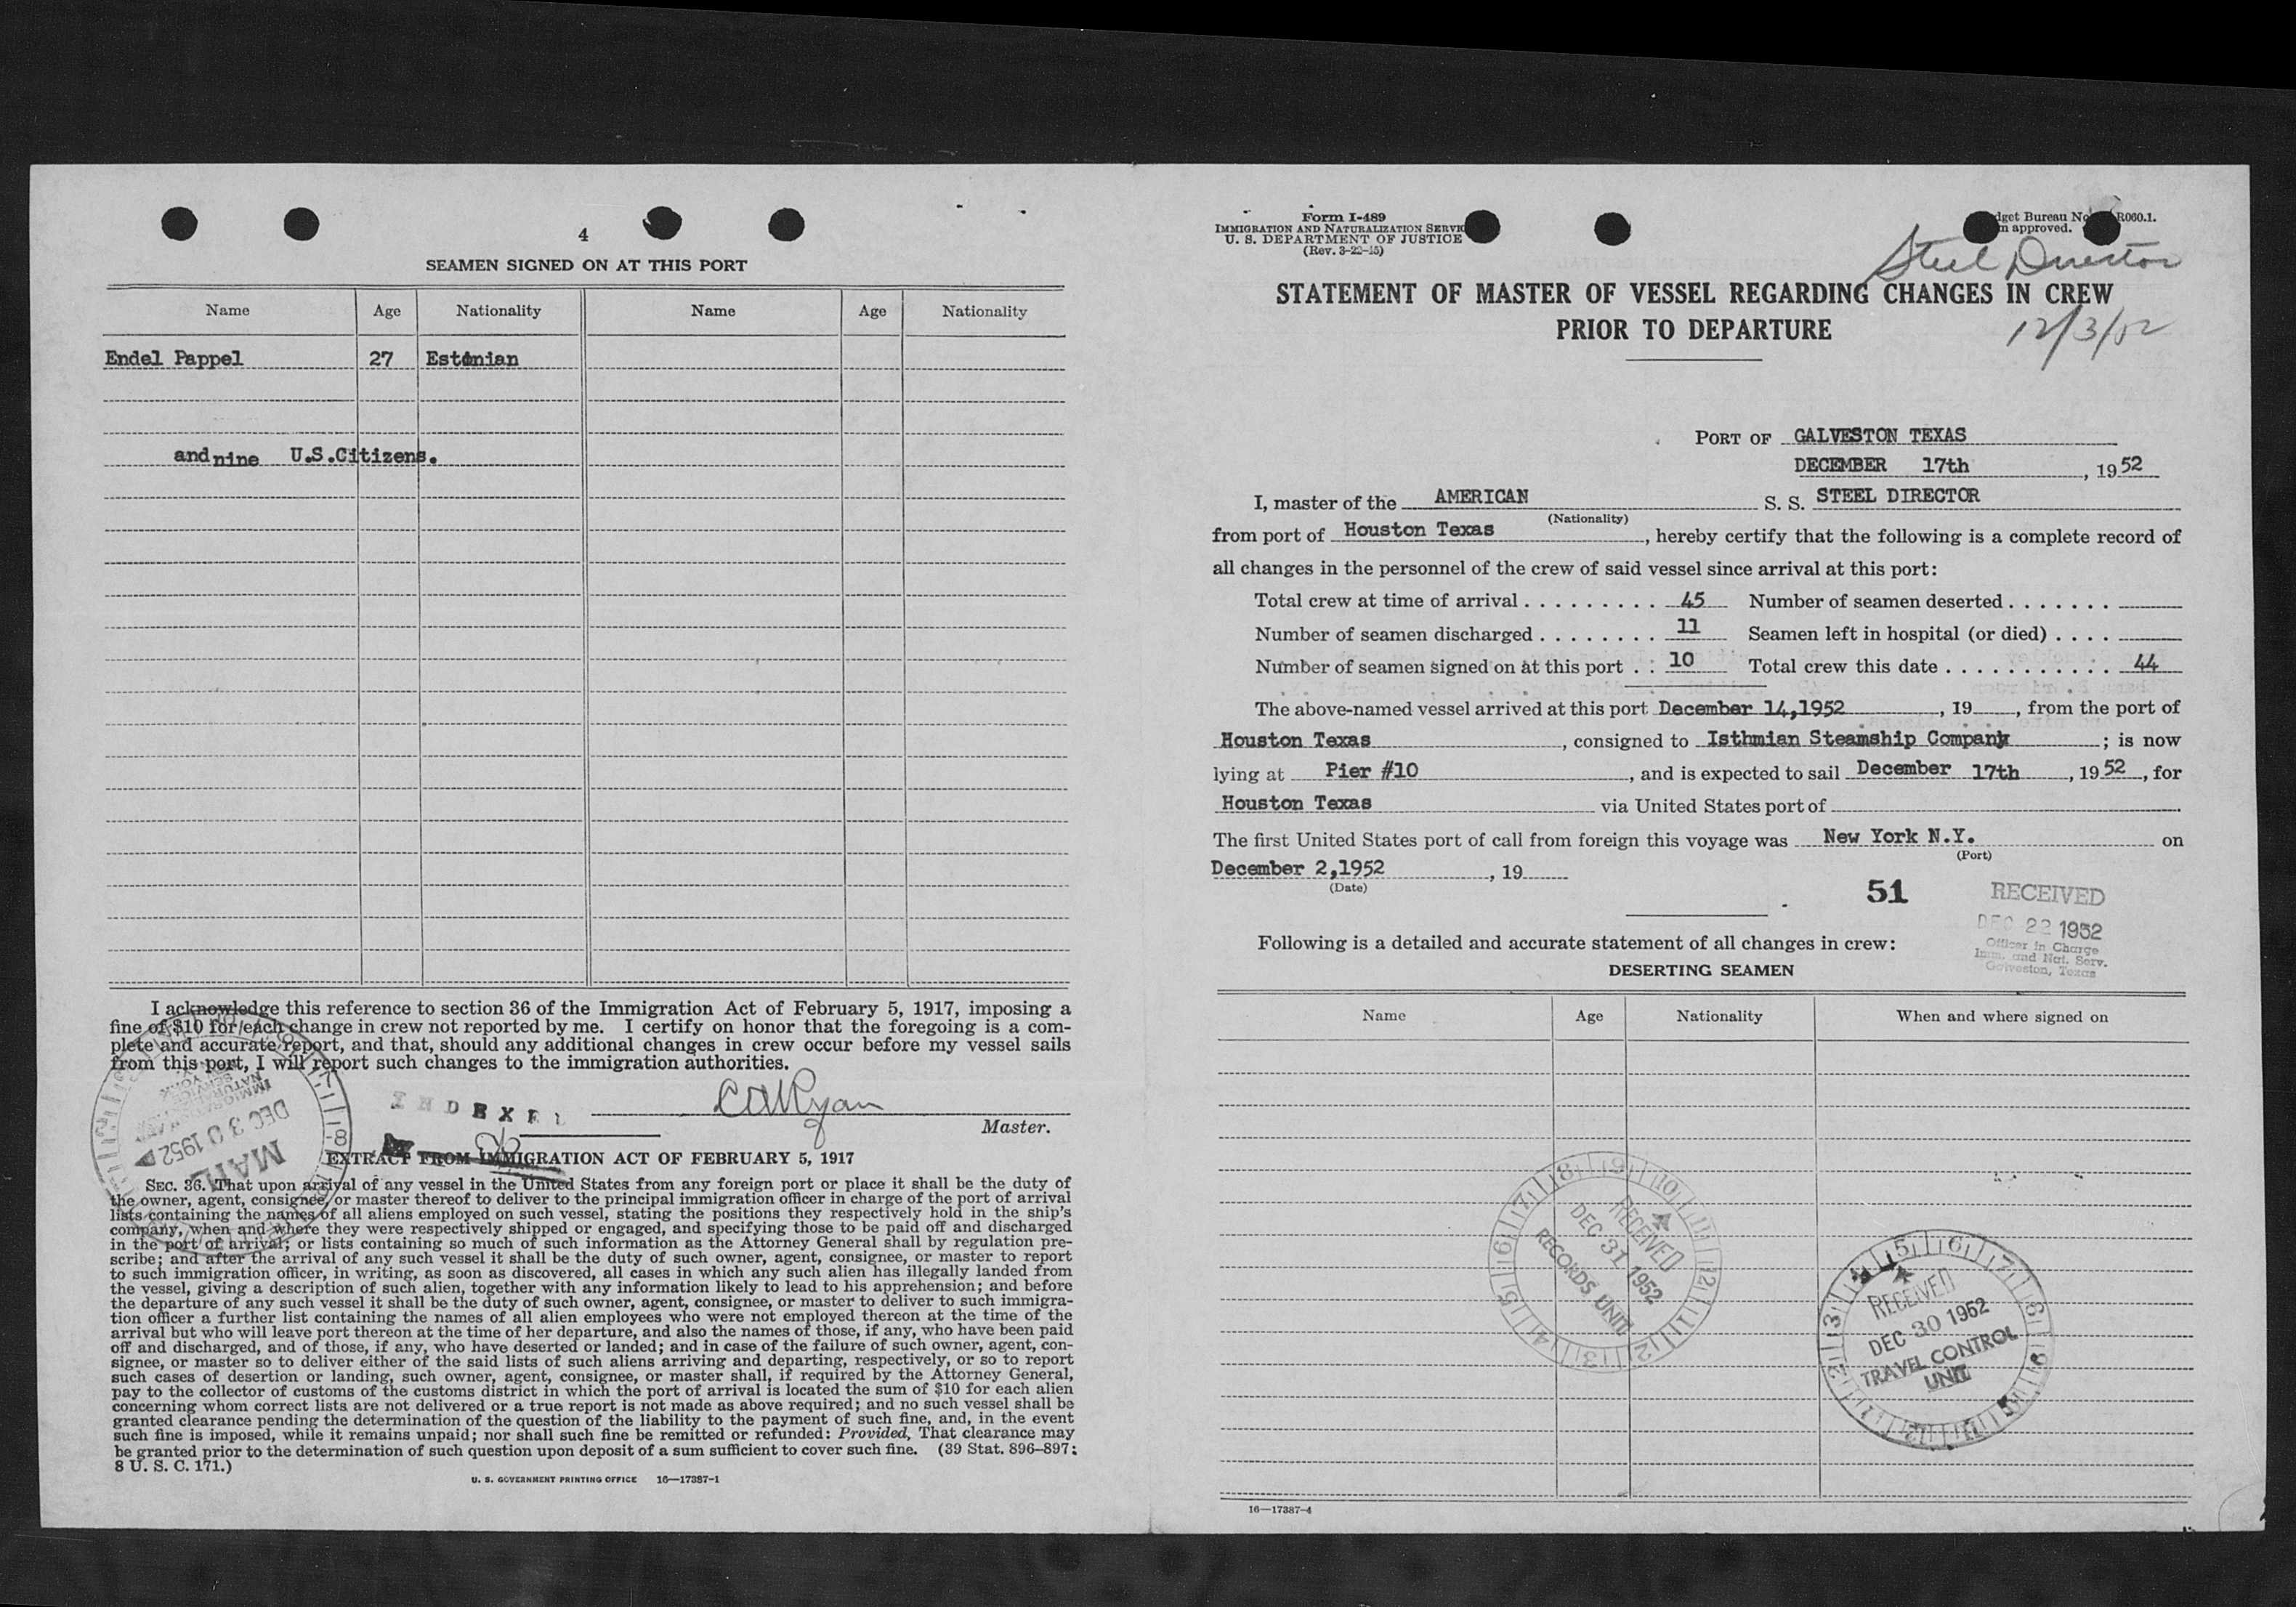 4
SEAMEN SIGNED ON AT THIS PORT
Name Age Nationality Name Age Nationality
Endel Pappel 27 Estonian
and nine U.S.Citizens.
I acknowledge this reference to section 36 of the Immigration Act of February 5, 1917, imposing a
fine of $10 for each change in crew not reported by me. I certify on honor that the foregoing is a com-
plete and accurate report, and that, should any additional changes in crew occur before my vessel sails
from this port, I will report such changes to the immigration authorities.
INDEXED
CARyan
Master.
IMMIGRATION
NATURALIZATION
SERVICE
DEC 30 1952
MAIL
EXTRACT FROM IMMIGRATION ACT OF FEBRUARY 5, 1917
SEC. 36. That upon arrival of any vessel in the United States from any foreign port or place it shall be the duty of
the owner, agent, consignee, or master thereof to deliver to the principal immigration officer in charge of the port of arrival
lists containing the names of all aliens employed on such vessel, stating the positions they respectively hold in the ship's
company, when and where they were respectively shipped or engaged, and specifying those to be paid off and discharged
in the port of arrival; or lists containing so much of such information as the Attorney General shall by regulation pre-
scribe; and after the arrival of any such vessel it shall be the duty of such owner, agent, consignee, or master to report
to such immigration officer, in writing, as soon as discovered, all cases in which any such alien has illegally landed from
the vessel, giving a description of such alien, together with any information likely to lead to his apprehension; and before
the departure of any such vessel it shall be the duty of such owner, agent, consignee, or master to deliver to such immigra-
tion officer a further list containing the names of all alien employees who were not employed thereon at the time of the
arrival but who will leave port thereon at the time of her departure, and also the names of those, if any, who have been paid
off and discharged, and of those, if any, who have deserted or landed; and in case of the failure of such owner, agent, con-
signee, or master so to deliver either of the said lists of such aliens arriving and departing, respectively, or so to report
such cases of desertion or landing, such owner, agent, consignee, or master shall, if required by the Attorney General,
pay to the collector of customs of the customs district in which the port of arrival is located the sum of $10 for each alien
concerning whom correct lists are not delivered or a true report is not made as above required; and no such vessel shall be
granted clearance pending the determination of the question of the liability to the payment of such fine, and, in the event
such fine is imposed, while it remains unpaid; nor shall such fine be remitted or refunded: Provided, That clearance may
be granted prior to the determination of such question upon deposit of a sum sufficient to cover such fine. (39 Stat. 896-897;
8 U. S. C. 171.)
U. S. GOVERNMENT PRINTING OFFICE 16—17387-1
Form I-489
IMMIGRATION AND NATURALIZATION SERVIC
U. S. DEPARTMENT OF JUSTICE
(Rev. 3-22-45)
dget Bureau No R060.1.
m approved.
Steel Director
12/3/52
STATEMENT OF MASTER OF VESSEL REGARDING CHANGES IN CREW
PRIOR TO DEPARTURE
PORT OF GALVESTON TEXAS
DECEMBER 17th, 1952
I, master of the AMERICAN S. S. STEEL DIRECTOR
(Nationality)
from port of Houston Texas, hereby certify that the following is a complete record of
all changes in the personnel of the crew of said vessel since arrival at this port:
Total crew at time of arrival . . . . . . . . . 45 Number of seamen deserted . . . . . . .
Number of seamen discharged . . . . . . . . 11 Seamen left in hospital (or died) . . . .
Number of seamen signed on at this port . . 10 Total crew this date . . . . . . . . . . . 44
The above-named vessel arrived at this port December 14,1952, 19, from the port of
Houston Texas, consigned to Isthmian Steamship Company; is now
lying at Pier #10, and is expected to sail December 17th, 1952, for
Houston Texas via United States port of
The first United States port of call from foreign this voyage was New York N.Y. on
(Port)
December 2,1952, 19
(Date)
51
RECEIVED
DEC 22 1952
Officer in Charge
Imm. and Nat. Serv.
Galveston, Texas
Following is a detailed and accurate statement of all changes in crew:
DESERTING SEAMEN
Name Age Nationality When and where signed on
RECEIVED
DEC 31 1952
RECORDS UNIT
RECEIVED
DEC 30 1952
TRAVEL CONTROL
UNIT
16—17387-4